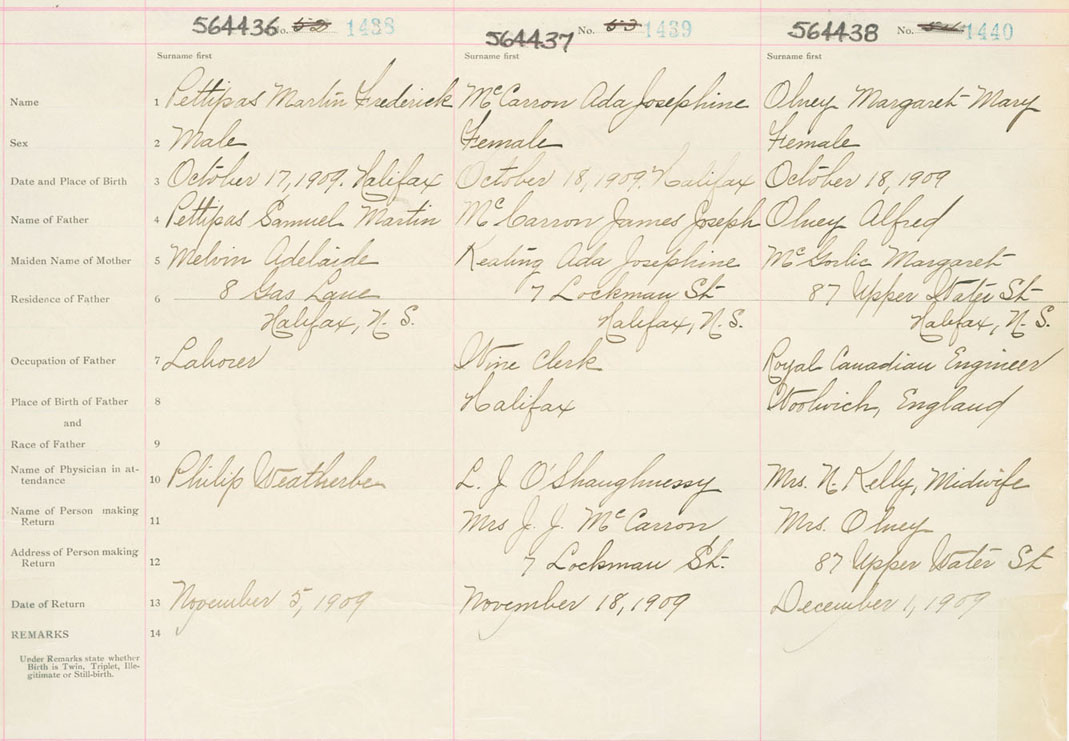 564436 No. 52 1438 564437 No. 53 1439 564438 No. 54 1440
Surname first Surname first Surname first
Name 1 Pettipas Martin Frederick McCarron Ada Josephine Olney Margaret Mary
Sex 2 Male Female Female
Date and Place of Birth 3 October 17, 1909. Halifax October 18, 1909. Halifax October 18, 1909
Name of Father 4 Pettipas Samuel Martin McCarron James Joseph Olney Alfred
Maiden Name of Mother 5 Melvin Adelaide Keating Ada Josephine McGorlic Margaret
Residence of Father 6 8 Gas Lane 7 Lockman St 87 Upper Water St
Halifax, N. S. Halifax, N. S. Halifax, N. S.
Occupation of Father 7 Laborer Wine Clerk Royal Canadian Engineer
Place of Birth of Father 8 Halifax Woolwich, England
and
Race of Father 9
Name of Physician in at-
tendance 10 Philip Weatherbe L. J. O'Shaughnessy Mrs. N. Kelly, Midwife
Name of Person making
Return 11 Mrs J. J. McCarron Mrs. Olney
Address of Person making
Return 12 7 Lockman St. 87 Upper Water St
Date of Return 13 November 5, 1909 November 18, 1909 December 1, 1909
REMARKS 14
Under Remarks state whether
Birth is Twin, Triplet, Ille-
gitimate or Still-birth.